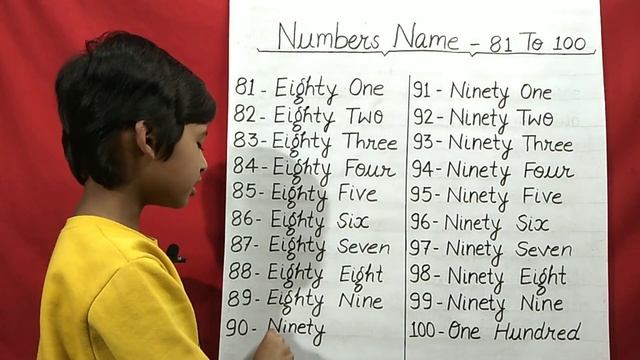 Numbers Name - 81 To 100
81 - Eighty One
82 - Eighty Two
83 - Eighty Three
84 - Eighty Four
85 - Eighty Five
86 - Eighty Six
87 - Eighty Seven
88 - Eighty Eight
89 - Eighty Nine
90 - Ninety
91 - Ninety One
92 - Ninety Two
93 - Ninety Three
94 - Ninety Four
95 - Ninety Five
96 - Ninety Six
97 - Ninety Seven
98 - Ninety Eight
99 - Ninety Nine
100 - One Hundred